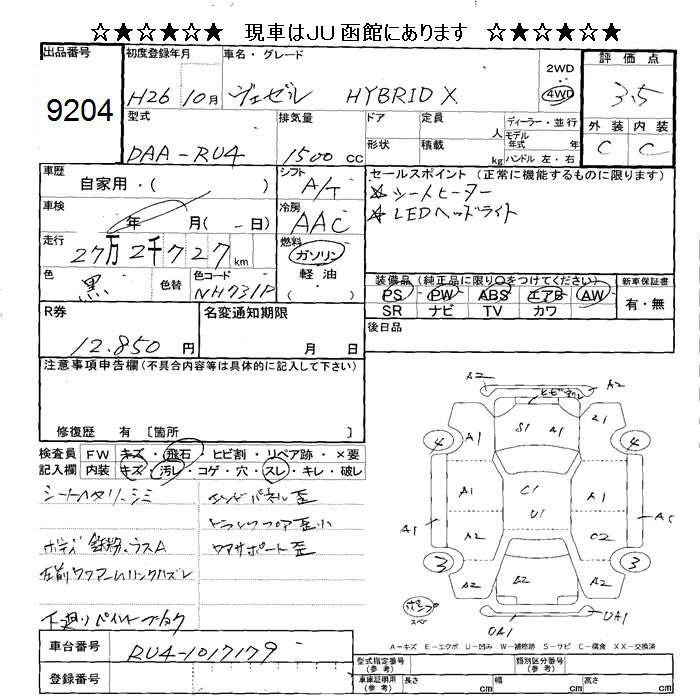 ☆★☆★☆★ 現車はJU函館にあります ☆★☆★☆★
出品番号
9204
初度登録年月
H26 10月
車名・グレード
ヴェゼル HYBRID X
2WD
4WD
評価点
3.5
外装 内装
C C
型式
DAA-RU4
排気量
1500 cc
ドア
形状
定員 人
積載 kg
ディーラー・並行
モデル年式 年式
ハンドル 左・右
車歴
自家用・( )
車検
年 月( - 日)
走行
27万2千727km
色
黒
色替
色コード
NH731P
シフト
A/T
冷房
AAC
燃料
ガソリン
軽油
・( )
セールスポイント (正常に機能するものに限ります)
☆シートヒーター
☆LEDヘッドライト
装備品 (純正品に限り○をつけてください)
PS PW ABS エアB AW
SR ナビ TV カワ
新車保証書
有・無
後日品
R券
12.850円
名変通知期限
月 日
注意事項申告欄(不具合内容等は具体的に記入して下さい)
修復歴 有 〔箇所 〕
検査員記入欄
FW キズ・飛石・ヒビ割・リペア跡・×要
内装 キズ・汚レ・コゲ・穴・スレ・キレ・破レ
シートヘタリ、シミ
エンドパネル歪
トランクフロア歪小
ボデー鉄粉、ラスA
コアサポート歪
左前ロワアームリンクハズレ
下廻りペイントブロック
A2
A2
A1
S1
A1
A1
4
4
A1
C1
A1
U1
A1
A2
C2
3
3
A2
A2
UA1
UA1
A－キズ E－エクボ U－凹み W－補修跡 S－サビ C－腐食 XX－交換済
車台番号
RU4-1017179
登録番号
型式指定番号(参考)
類別区分番号(参考)
車庫証明用(参考) 長さ cm 幅 cm 高さ cm